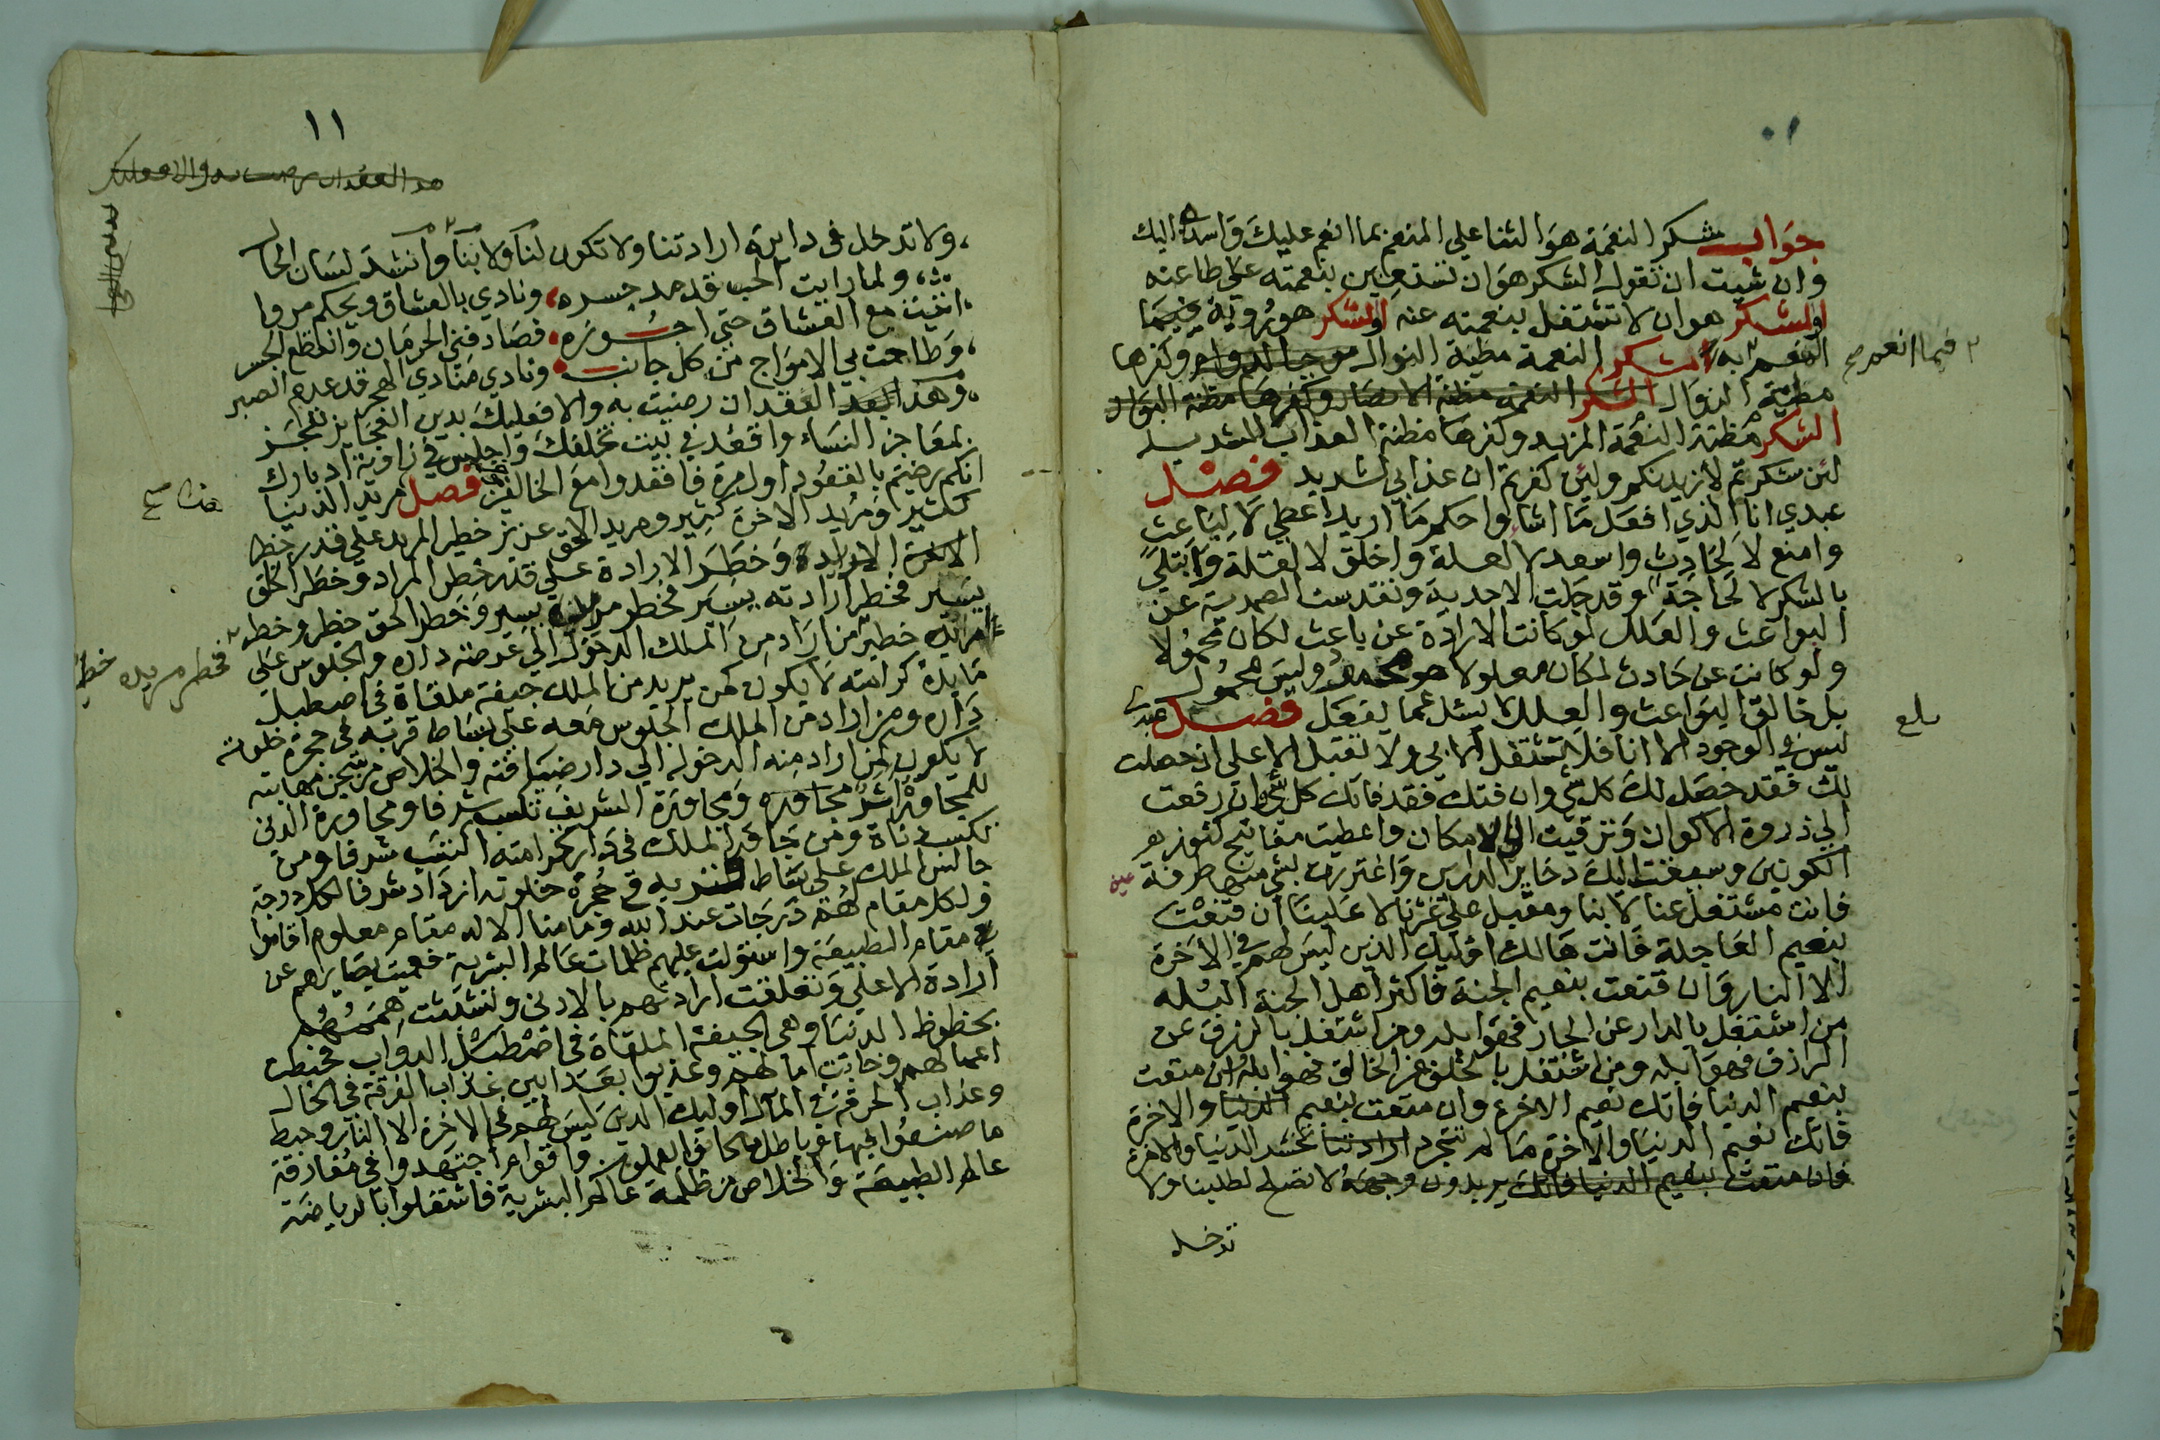 جواب شكر النعمة هو الثنا علي المنعم بما انعم عليك واسداه اليك
وان شيت ان تقول الشكر هو ان تستعين بنعمته علي طاعته
او الشكر هو ان لا تشتغل بنعمته عنه او الشكر هو رويته فيما
انعم به الشكر النعمة مطية النوال وكفرها
فيما انعم صح
مظنة الزوال الشكر النعمة مظنة وكفرها مظنة
الشكر مظنة النعمة المزيد وكفرها مظنة العذاب الشديد
لئن شكرتم لازيدنكم ولين كفرتم ان عذابي لشديد فصل
عبدي انا الذي افعل ما اشا واحكم ما اريد اعطي لا لباعث
وامنع لا لحادث واسعد لا لعلة واخلق لا لقلة وابتلي
بالشكر لا لحاجة وقد جلت الاحدية وتقدست الصمدية عن
البواعث والعلل لو كانت الارادة عن باعث لكان محمولا
ولو كانت عن حادث لكان معلولا هو وليس محمول
بل خالق البواعث والعلل لا يسئل عما يفعل فصل عبدي
بلغ
ليس في الوجود الا انا فلا تشتغل الا بي ولا تقبل الا علي ان حصلت
لك فقد حصل لك كل شي وان فتك فقد فاتك كل شي وان رفعت
الي ذروة الاكوان وترقيت الي الامكان واعطيت مفاتيح كنوز
الكونين وسيقت اليك دخاير الدارين واغتررت بشي منها طرفة عين
فانت مشتغل عنا لا بنا ومقبل علي غيرنا لا علينا ان قنعت
بنعيم العاجلة فانت هالك اوليك الذين ليس لهم في الاخرة
الا النار وان قنعت بنعيم الجنة فاكثر اهل الجنة البله
من اشتغل بالدار عن الجار فهو ابله ومن اشتغل بالرزق عن
الرازق فهو ابله ومن اشتغل بالخلق عن الخالق فهو ابله ان متعت
بنعيم الدنيا فاتك نعيم الاخرة وان متعت بنعيم الدنيا والاخرة
فاتك نعيم الدنيا والاخرة ما لم تتجرد ارادتنا الدنيا والاخرة
فان متعت بنعيم الدنيا فاتك يريدون وجهه لا تصلح لطلبنا ولا
تدخل
١١
ولا تدخل في دايرة ارادتنا ولا تكون لنا ولا بنا وانشد لسان الحال
ولما رايت الحب قد مد جسره ونادي بالعشاق ويحكم مروا
اتيت مع العشاق حتي اجوزه فصادفني الحرمان وانقطع الجسر
وطاحت بي الامواج من كل جانب ونادي منادي الهجر قد عدم الصبر
وهذا الفقدان رضيت به والا فعليك بدين العجايز تعجز
بمعاجز النساء واقعد في بيت تخلفك واجلس في زاوية ادبارك
انكم رضيتم بالقعود اول مرة فاقعدوا مع الخالفين فصل مريد الدنيا
كثير ومريد الاخرة كثير ومريد الحق عزيز خطير المريد علي قدر خطر
الارادة وخطر الارادة علي قدر خطر المراد وخطر الخلق
يسير فخطر ارادته يسير فخطر مريده يسير وخطر الحق خطر وخطر
فخطر مريده خطير
مريده خطير من اراد من الملك الدخول الي عرصة داره والجلوس علي
مايدة كرامته لا يكون كمن يريد من الملك جيفة ملقاة في اصطبل
داره ومن اراد من الملك الجلوس معه علي بساط قربه في حجرة خلوته
لا يكون كمن اراد منه الدخول الي دار ضيافته والخلاص من سجن مهابته
للمجاورة اثر ومجاورة الشريف تكسب شرفا ومجاورة الدني
تكسب دناة ومن جاور الملك في دار كرامته اكتسب شرفا ومن
جالس الملك علي بساط قربه في حجرة خلوته ازداد شرفا لكل درجة
ولكل مقام لهم درجات عند الله وما منا الا له مقام معلوم اقاموا
في مقام الطبيعة واستولت عليهم ظلمات عالم البشرية فعميت بصايرهم عن
ارادة الاعلي وتعلقت ارادتهم بالادني وتشبثت هممهم
بحظوظ الدنيا وهي الجيفة الملقاة في اصطبل الدواب فحبطت
اعمالهم وخابت امالهم وعذبوا بعذابين عذاب الفرقة في الحال
وعذاب الحرقة في المآل اوليك الذين ليس لهم في الاخرة الا النار وحبط
ما صنعوا فيها وباطل ما كانوا يعملون واقوام اجتهدوا في مفارقة
عالم الطبيعة والخلاص من ظلمة عالم البشرية فاشتغلوا بالرياضة